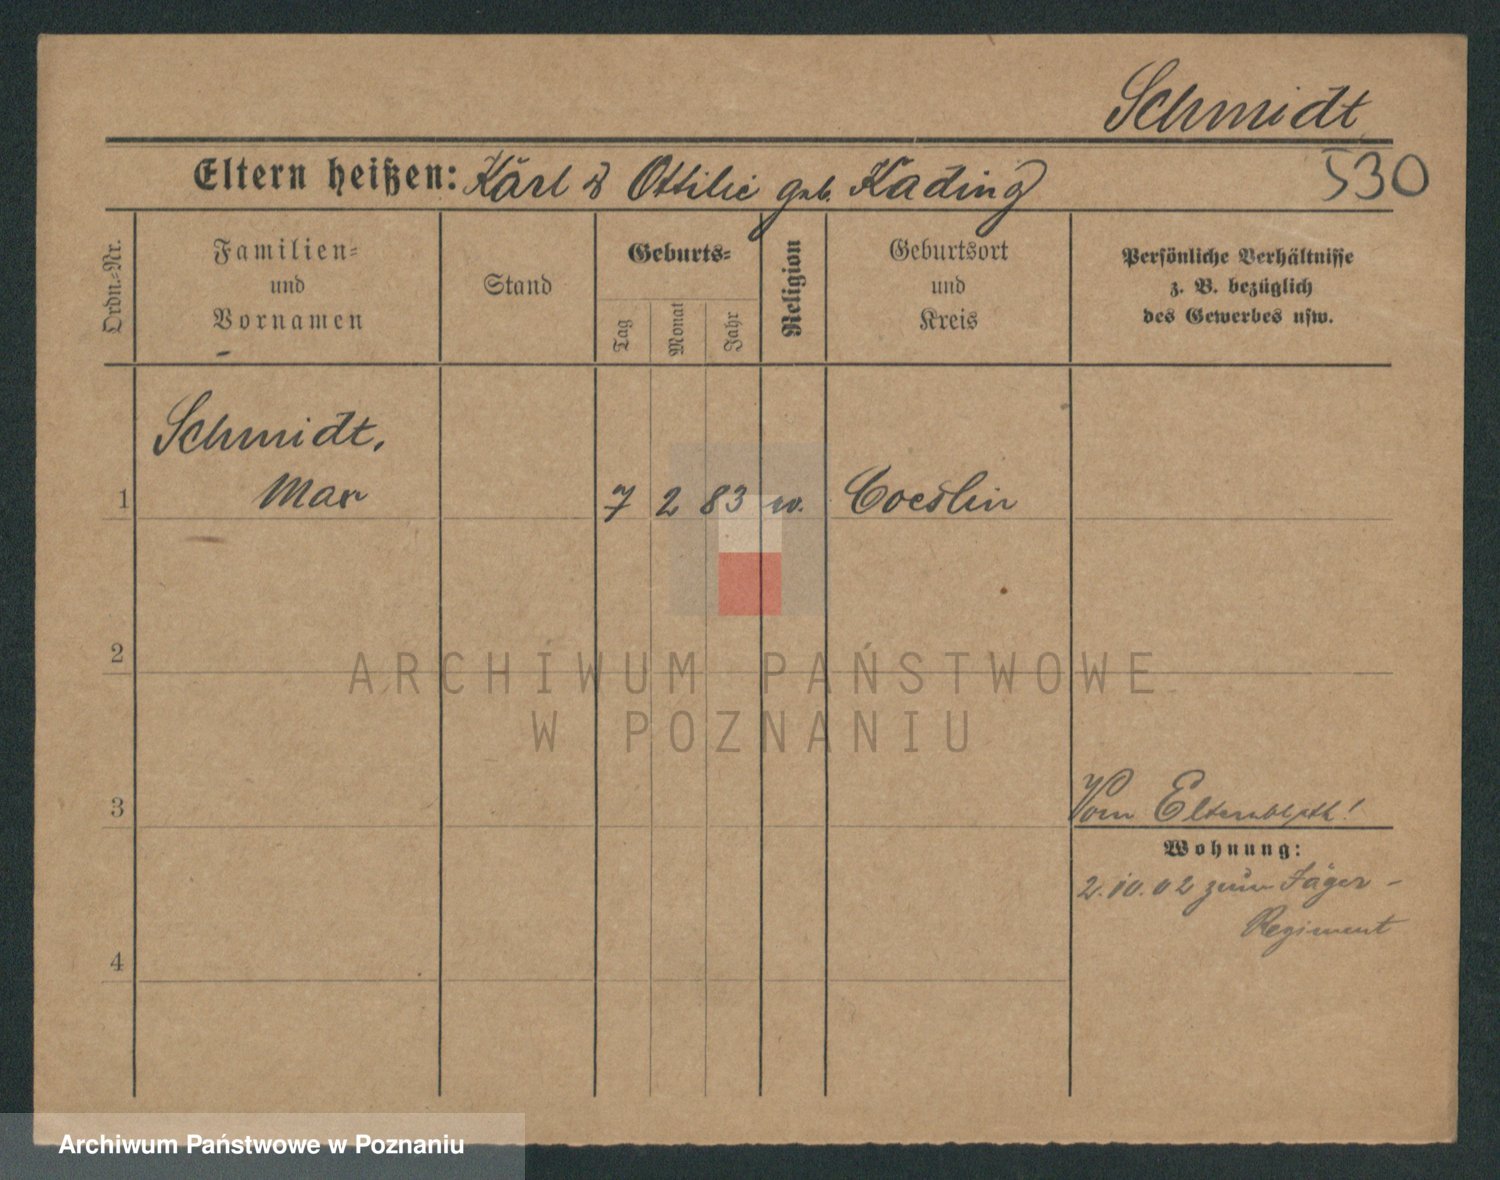 Schmidt
Eltern heißen: Karl & Ottilie geb. Kading
530
Ordn.-Nr.
Familien-
und
Vornamen
Stand
Geburts-
Tag
Monat
Jahr
Religion
Geburtsort
und
Kreis
Persönliche Verhältnisse
z. B. bezüglich
des Gewerbes usw.
Schmidt,
1 Max 7 2 83 w. Coeslin
2
ARCHIWUM PAŃSTWOWE
W POZNANIU
3
Vom
Wohnung:
2.10.02 zum Jäger-
Regiment
4
Archiwum Państwowe w Poznaniu